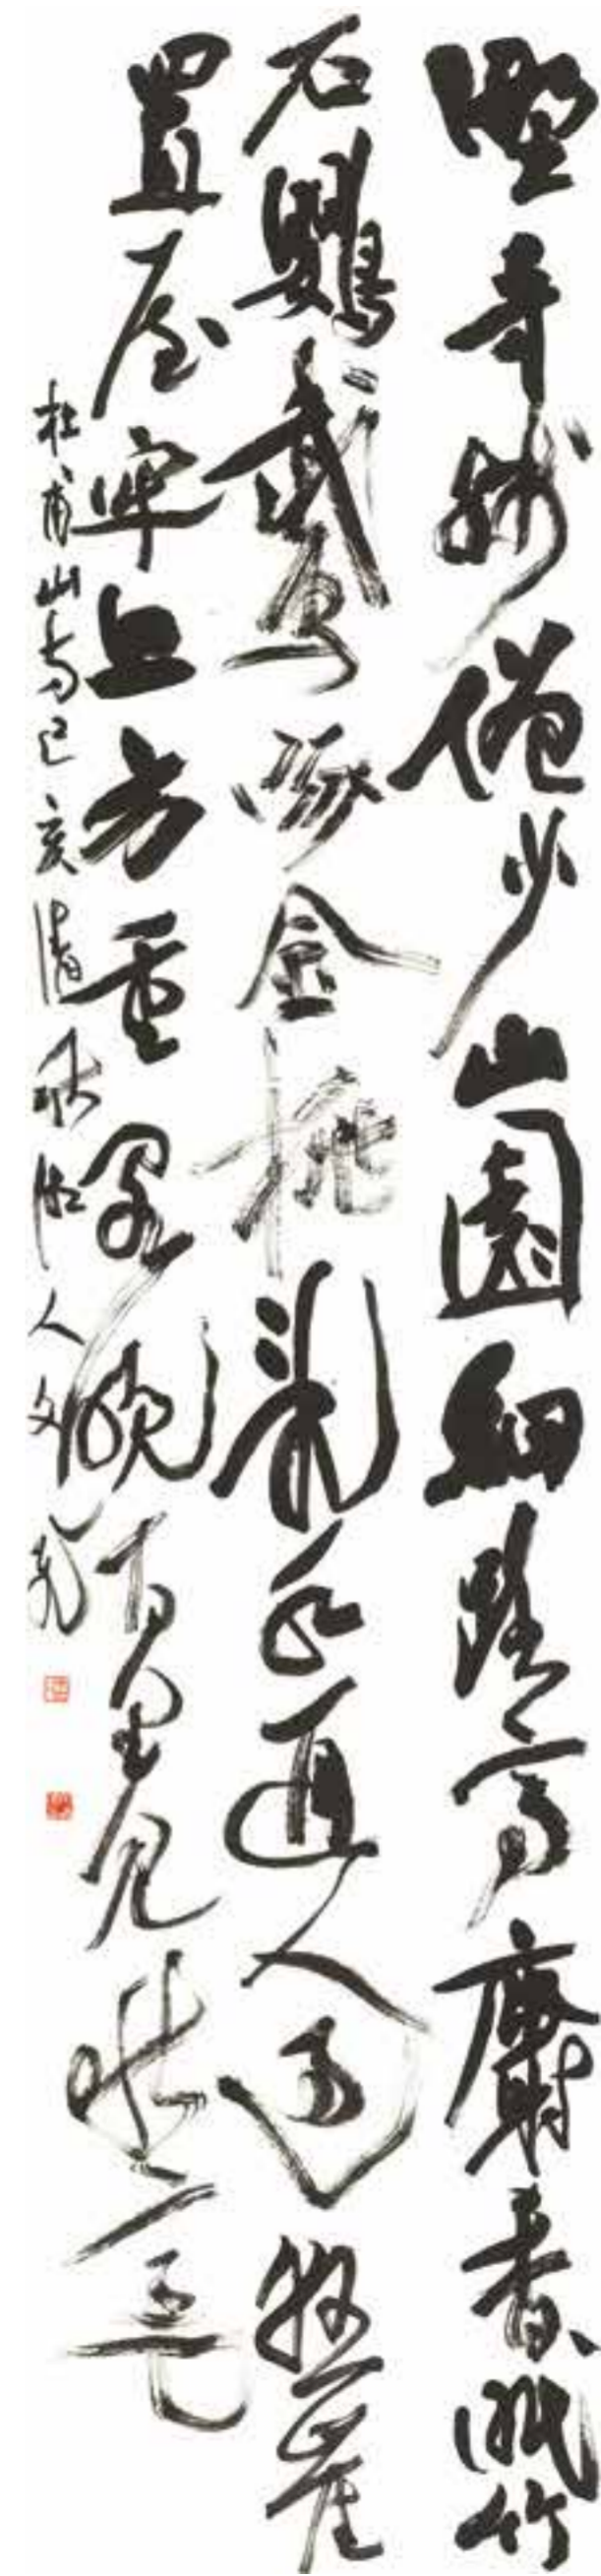 野寺殘僧少山園細路高麝香眠竹
石鸚鵡啄金桃亂水通人過懸崖
置屋牢上方重閣晚百里見秋毫
杜甫山寺己亥清秋湘人文